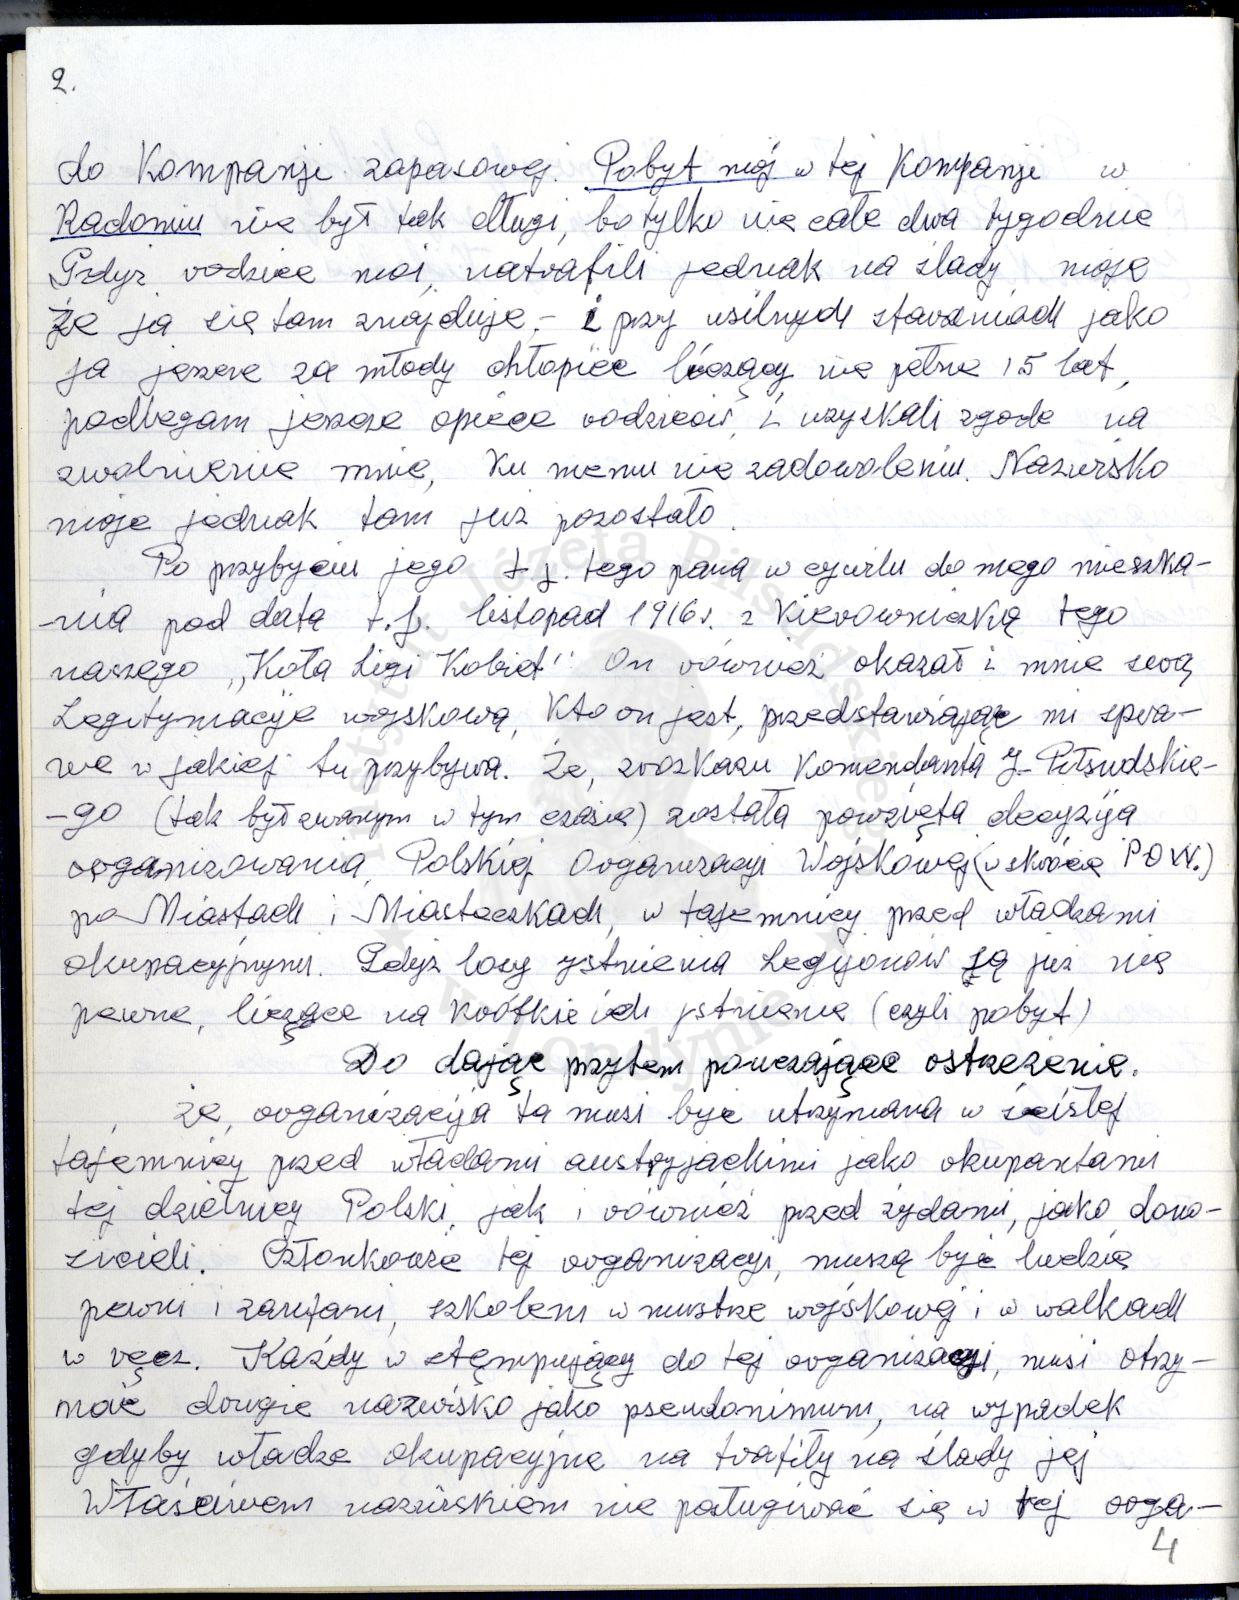 2.
do Kompanji zapasowej. Pobyt mój w tej Kompanji w
Radomiu nie był tak długi, bo tylko nie całe dwa tygodnie
Gdyż rodzice moi, natrafili jednak na ślady moje
że ja się tam znajduję,- i przy usilnych staraniach jako
ja jeszcze za młody chłopiec liczący nie pełne 15 lat,
podlegam jeszcze opiece rodziców, i uzyskali zgodę na
zwolnienie mnie, ku memu nie zadowoleniu. Nazwisko
moje jednak tam już pozostało.
Po przybyciu jego t.j. tego pana w cywilu do mego mieszka-
-nia pod datą t.j. listopad 1916r. z kierowniczką tego
naszego „Koła Ligi Kobiet" On również okazał i mnie swą
Legitymację wojskową, kto on jest, przedstawiając mi spra-
wę w jakiej tu przybywa. Że, zrozkazu Komendanta J. Piłsudskie-
-go (tak był zwanym w tym czasie) została powzięta decyzija
organizowania, Polskiej Organizacji Wojskowej (w skrócie P O W.)
po Miastach i Miasteczkach, w tajemnicy przed władzami
okupacyjnymi. Gdyż losy ystnienia Legijonów są już nie
pewne, liczące na krótkie ich jstnienie (czyli pobyt)
Do dając przytem pouczające ostrzeżenie.
że, organizacija ta musi być utrzymana w ścisłej
tajemnicy przed władzami austryjackimi jako okupantami
tej dzielnicy Polski, jak i również przed żydami, jako dono-
sicieli. Członkowie tej organizacji, muszą być ludzie
pewni i zaufani, szkoleni w mustrze wojskowej i w walkach
w ręcz. Każdy w stępujący do tej organizacji, musi otrzy-
mać drugie nazwisko jako pseudonimum, na wypadek
gdyby władze okupacyjne na trafiły na ślady jej
Właściwem nazwiskiem nie posługiwać się w tej orga-
4
Instytut Józefa Piłsudskiego
w Londynie